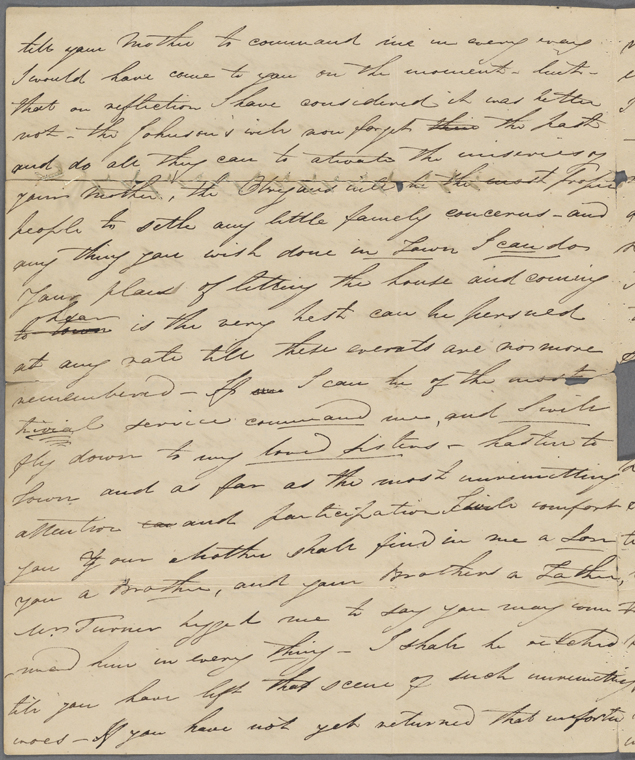 tell your Mother to command me in every way
I would have come to you on the moment - but -
that on reflection I have considered it was better
not - the Johnson's will now forget the past
and do all they can to aleviate the miseries of
your Mother, the will be the most Proper
people to settle any little family concerns - and
any thing you wish done in Town I can do
Your plans of letting the house and coming
to town near is the very best can be persued
at any rate till these events are no more
remembered - If I can be of the most
trivial service command me, and I will
fly down to my loved sisters - hasten to
Town and as far as the most unremitting
attention and participation can comfort
you Your Mother shall find in me a Son
you a Brother, and your Brothers a Father,
Mrs Turner begged me to say you may com
mand him in every thing - I shall be wretched
till you have left that scene of such unremitting
woes - If you have not yet returned that unfortu